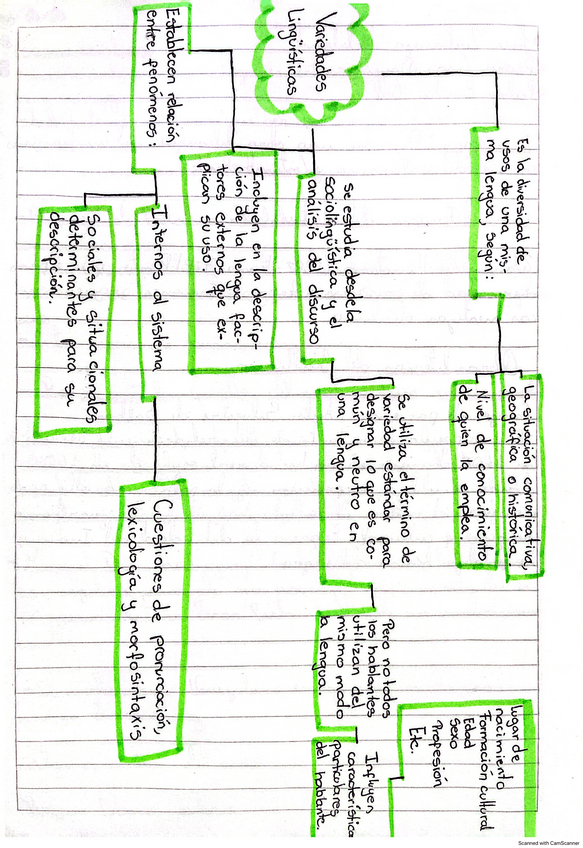 Variedades
Lingüísticas
Es la diversidad de
usos de una mis-
ma lengua, según:
La situación comunicativa,
geográfica o histórica.
Nivel de conocimiento
de quien la emplea.
Se estudia desde la
sociolingüística y el
análisis del discurso
Se utiliza el término de
variedad estándar para
designar lo que es co-
mún y neutro en
una lengua.
Pero no todos
los hablantes
utilizan del
mismo modo
la lengua.
Influyen
característica
particulares
del hablante.
Lugar de
nacimiento
Formación cultural
Edad
Sexo
Profesión
Etc.
Incluyen en la descrip-
ción de la lengua fac-
tores externos que ex-
plican su uso.
Establecen relación
entre fenómenos:
Internos al sistema
Cuestiones de pronunciación,
lexicología y morfosintaxis
Sociales y situacionales
determinantes para su
descripción.
Scanned with CamScanner